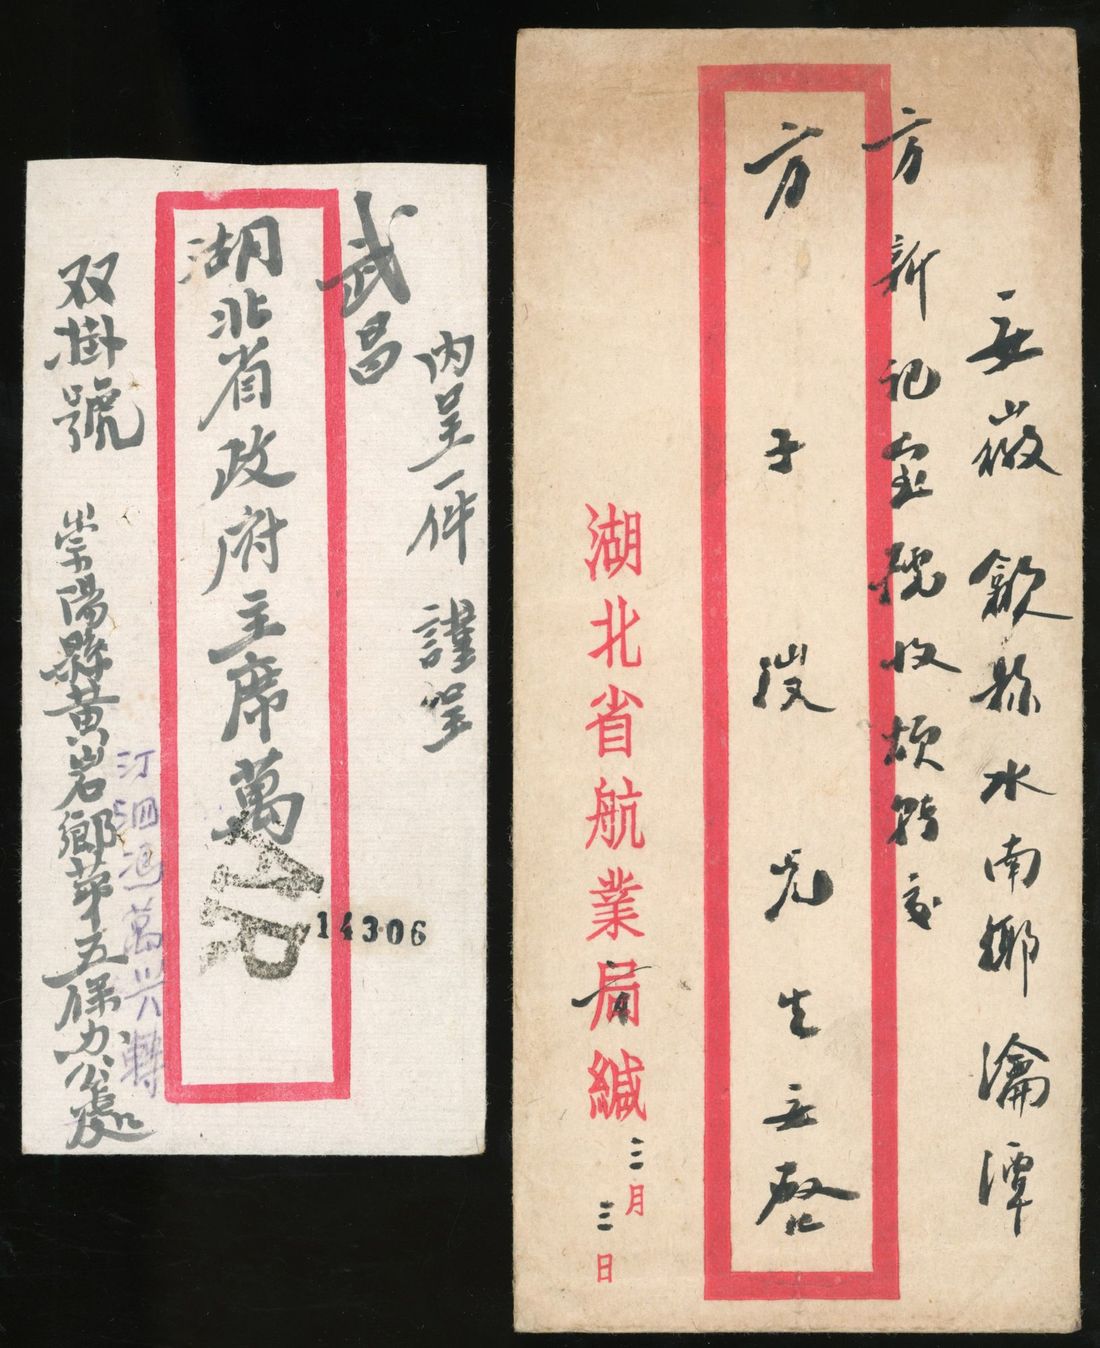 內呈一件 謹呈
武昌
湖北省政府主席萬
AR
14306
双掛號
崇陽縣黃岩鄉第五保办公處
汀泗馮萬兴轉
安徽歙縣水南鄉瀹潭
方新記寶號收煩轉交
方子 光生安啓
湖北省航業局緘
方
三月
三日